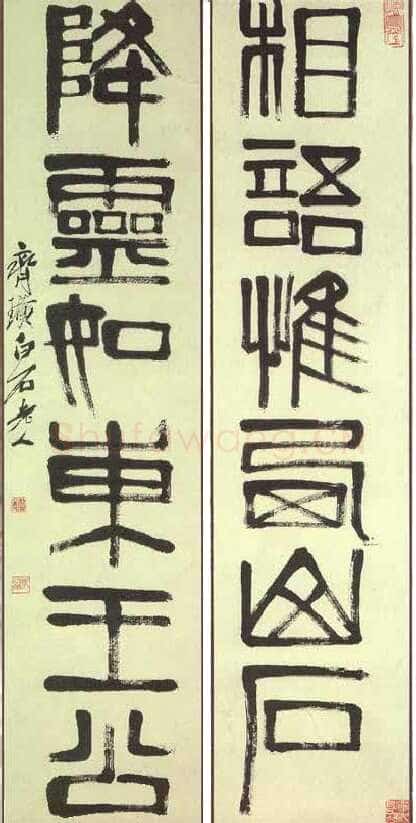 相語惟西山石
降靈如東王公
齊璜白石老人
Shufawang.cn